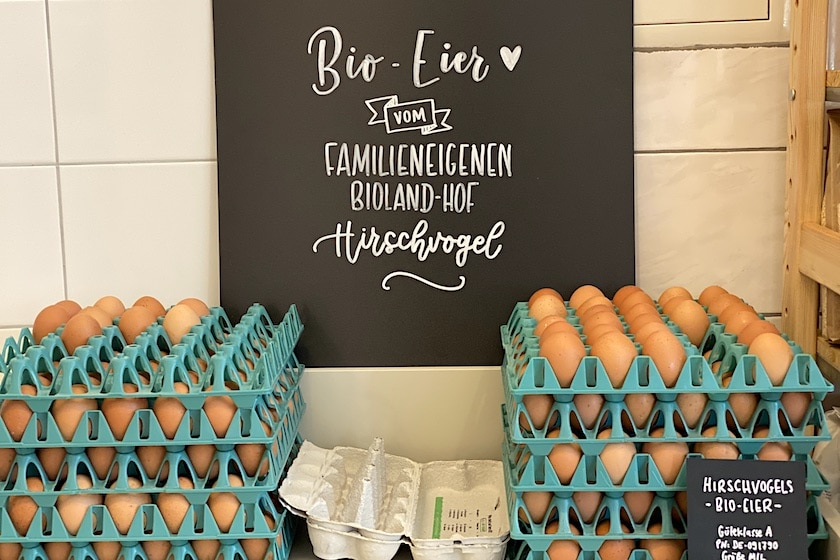 Bio-Eier
VOM
FAMILIENEIGENEN
BIOLAND-HOF
Hirschvogel
HIRSCHVOGELS
-BIO-EIER-
Güteklasse A
PN: DE-091790
Größe M/L